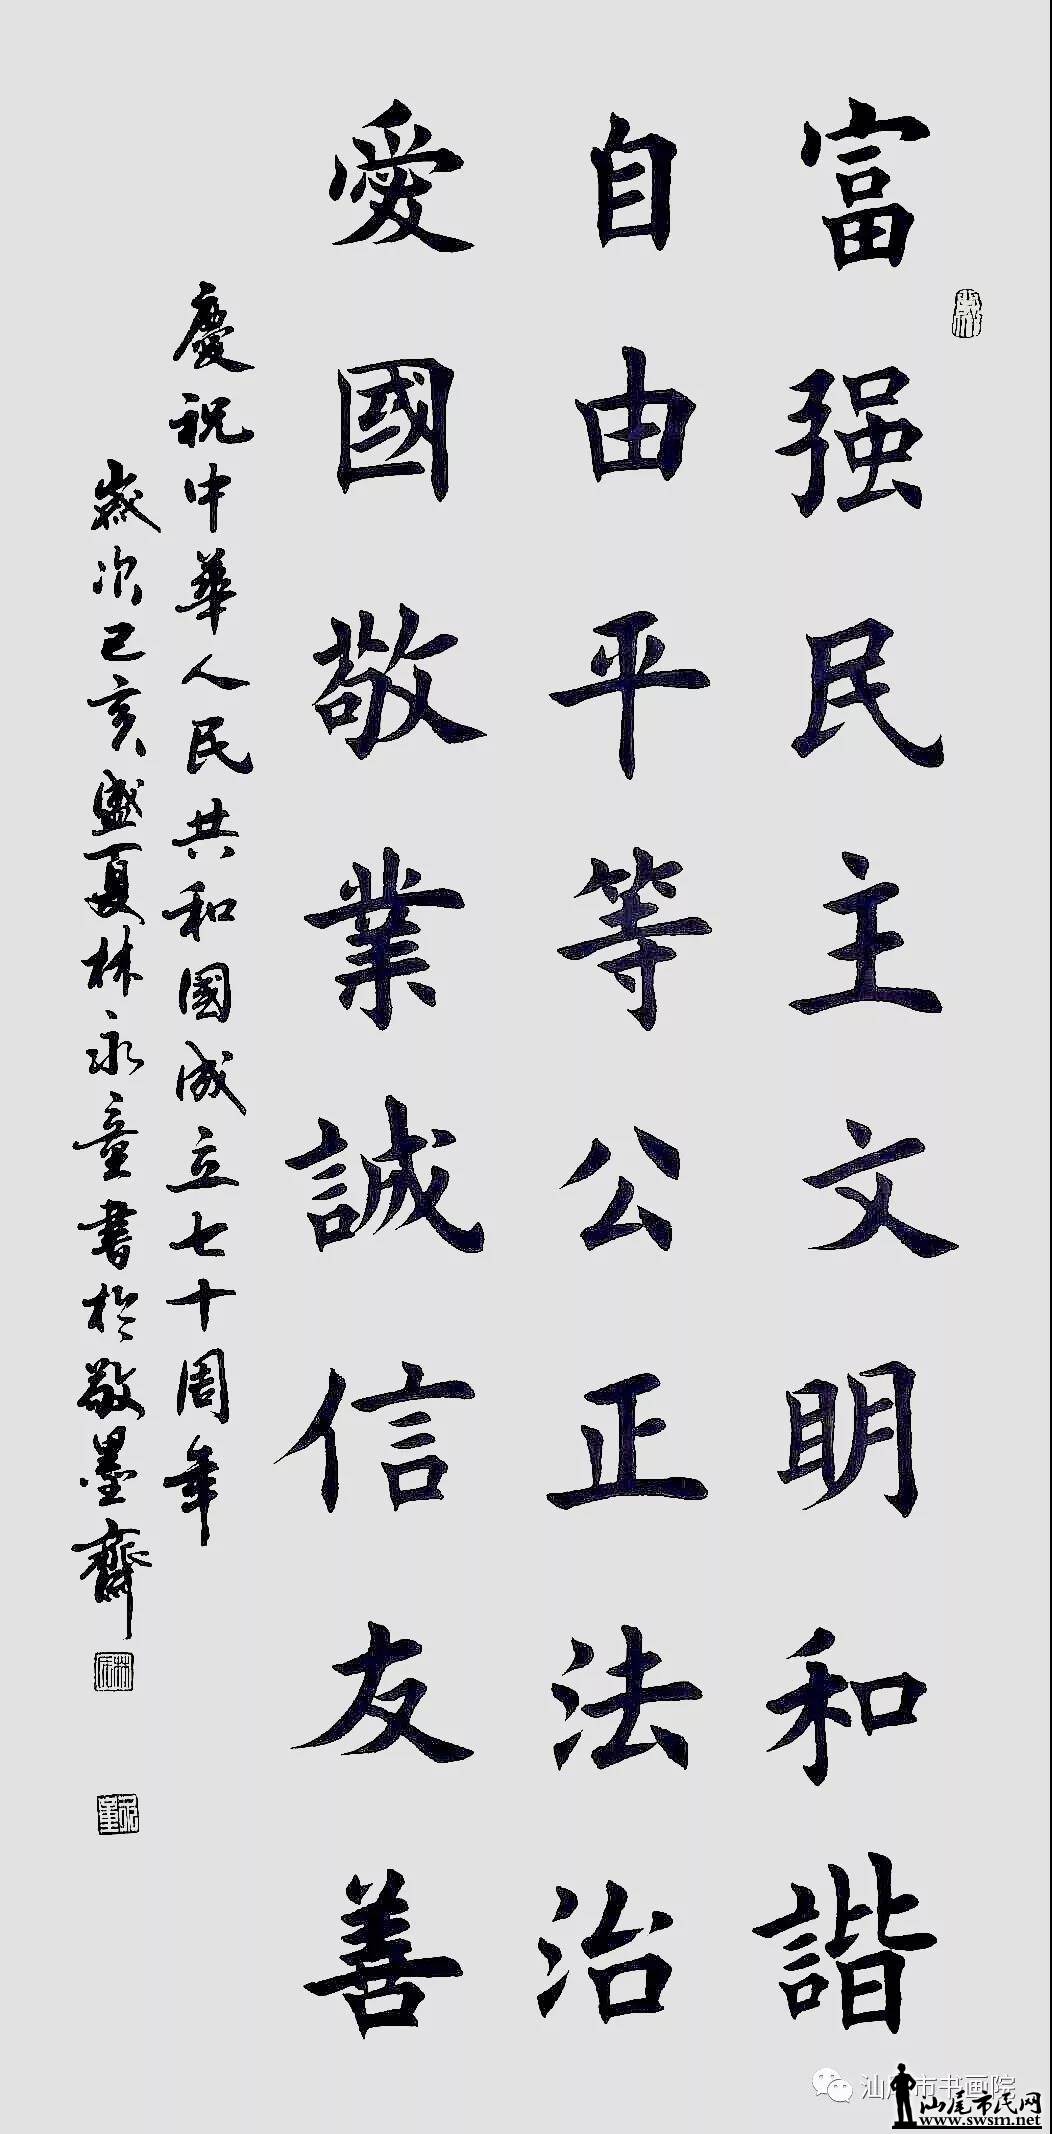 富强民主文明和諧
自由平等公正法治
愛國敬業誠信友善
慶祝中華人民共和國成立七十周年
歲次己亥盛夏林永童書於敬墨齋
汕尾市书画院
汕尾市民网
www.swsm.net